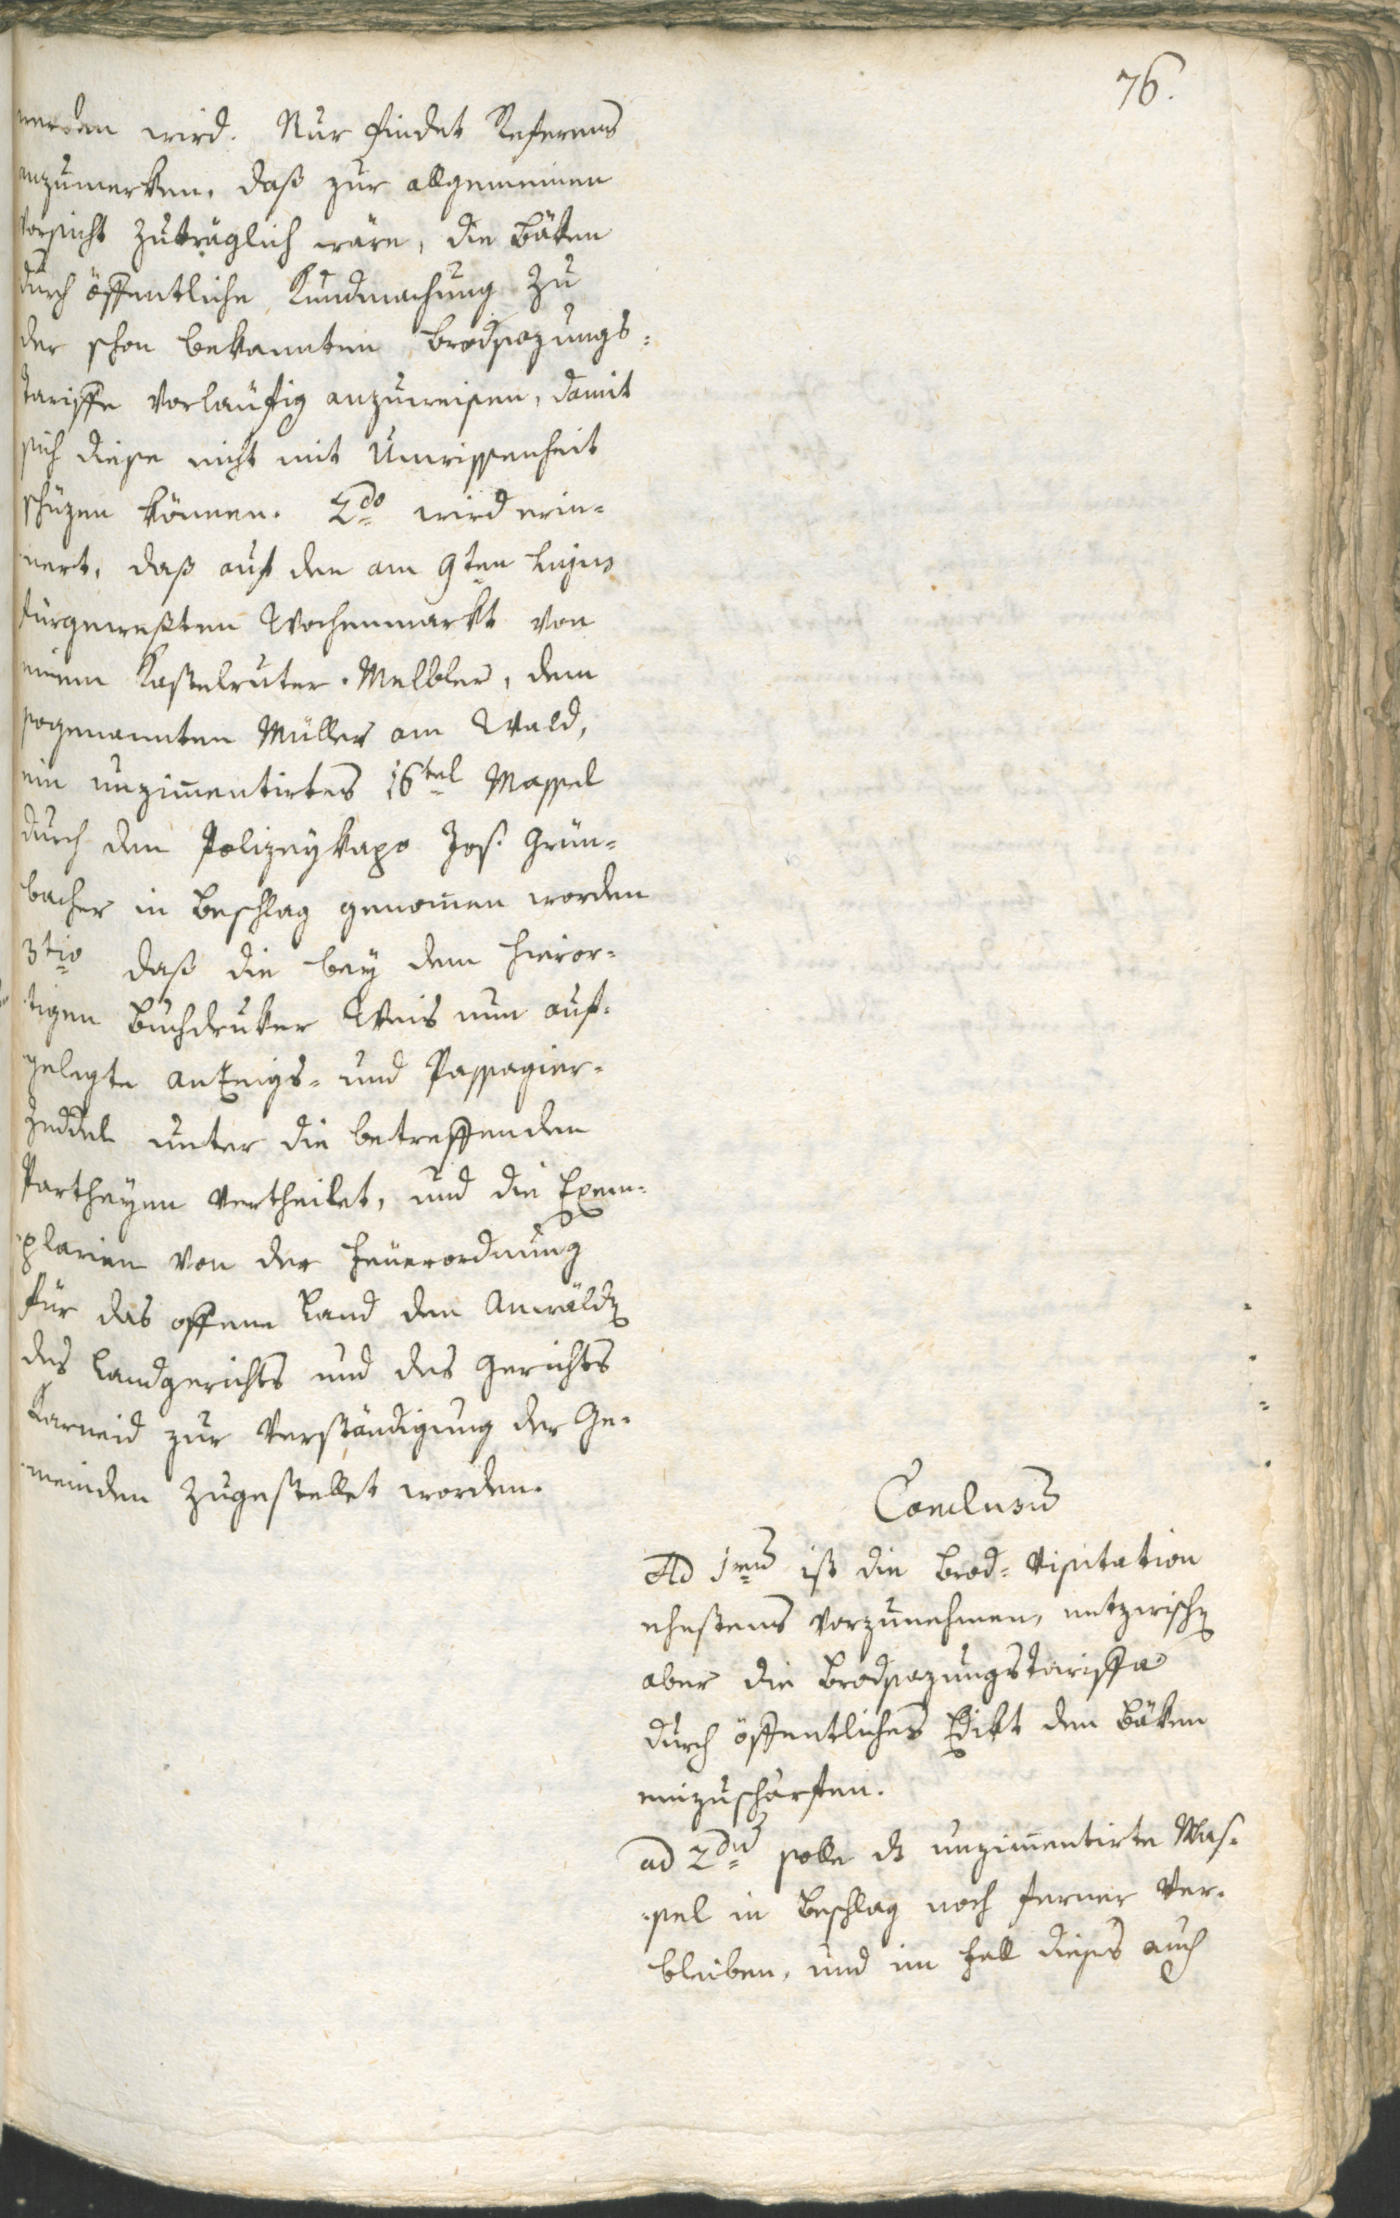 76.
werden wird. Nur findet Referens
anzumerken, daß zur allgemeinen
Vorsicht zuträglich wäre, die Bäken
durch öffentliche Kundmachung zu
der schon bekannten Brodsazungs-
tariffe vorläufig anzuweisen, damit
sich diese nicht mit Unwissenheit
schüzen können. 2do wird erin-
nert, daß auf den am 9ten hujus
fürgewesten Wochenmarkt von
einem Kastelruter Melbler, dem
sogenannten Müller am Wald,
ein unzimentirtes 16tel Massel
durch den Polizeykapo Jos. Grün-
bacher in Beschlag genomen worden
3tio daß die bey dem hieror-
tigen Buchdruker Weis nun auf-
gelegte anzeigs- und Passagier-
Zeddel unter die betreffenden
Partheyen vertheilet, und die Exem-
plarien von der Feuerordnung
für das offene Land den Anwäld
des Landgerichts und des Gerichts
Karneid zur Verständigung der Ge-
meinden zugestellet worden.
Conclusum
Ad 1mum ist die Brod-Visitation
ehestens vorzunehmen, entzwischen
aber die Brodsazungstariffa
durch öffentliches Edikt den Bäken
einzuschärfen.
ad 2dum solle das unzimentirte Mas-
sel in Beschlag noch ferner ver-
bleiben, und im Fall dieses auch